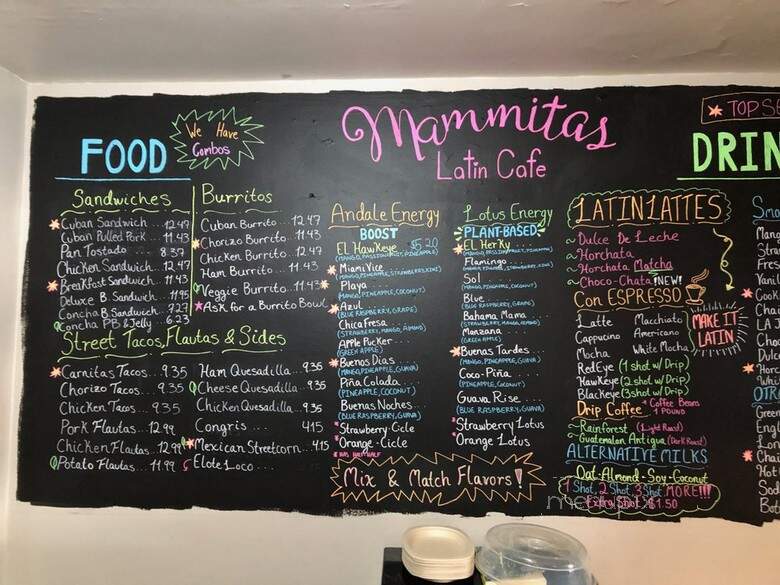 FOOD
We Have
Combos
Mammitas
Latin Cafe
TOP
DRIN
Sandwiches
Cuban Sandwich ... 12.47
Cuban Pulled Pork... 11.43
Pan Tostado ... 8.37
Chicken Sandwich... 12.47
Breakfast Sandwich... 11.43
Deluxe B. Sandwich... 11.95
Concha B. Sandwich... 7.27
Concha PB & Jelly ... 6.23
Burritos
Cuban Burrito... 12.47
Chorizo Burrito... 11.43
Chicken Burrito... 12.47
Ham Burrito... 11.43
Veggie Burrito... 11.43
Ask for a Burrito Bowl
Street Tacos, Flautas & Sides
Carnitas Tacos ... 9.35
Chorizo Tacos ... 9.35
Chicken Tacos ... 9.35
Pork Flautas... 12.99
Chicken Flautas... 12.99
Potato Flautas... 11.99
Ham Quesadilla... 9.35
Cheese Quesadilla... 9.35
Chicken Quesadilla... 9.35
Congris ... 4.15
Mexican Streetcorn... 4.15
Elote Loco...
Andale Energy
BOOST
El Hawkeye $5.20
(MANGO, PASSIONFRUIT, PINEAPPLE)
Miami Vice
Playa
(MANGO, PINEAPPLE, COCONUT)
Azul
(BLUE RASPBERRY, GRAPE)
Chica Fresa
(STRAWBERRY, MANGO, ALMOND)
Apple Pucker
(GREEN APPLE)
Buenos Dias
(MANGO, PINEAPPLE, GUAVA)
Piña Colada
(PINEAPPLE, COCONUT)
Buenas Noches
(BLUE RASPBERRY, GUAVA)
Strawberry-Cicle
Orange-Cicle
HAS HALF HALF
Lotus Energy
PLANT-BASED
El Herky
Flamingo
Sol
(MANGO, PINEAPPLE, COCONUT)
Blue
(BLUE RASPBERRY, GRAPE)
Bahama Mama
(STRAWBERRY, MANGO, ALMOND)
Manzana
(GREEN APPLE)
Buenas Tardes
(MANGO, PINEAPPLE, GUAVA)
Coco-Piña
(PINEAPPLE, COCONUT)
Guava Rise
(BLUE RASPBERRY, GUAVA)
Strawberry Lotus
Orange Lotus
Mix & Match Flavors!
LATIN LATTES
~Dulce De Leche
~Horchata
~Horchata Matcha
~Choco-Chata NEW!
Con ESPRESSO
Latte
Cappucino
Mocha
Macchiato
Americano
White Mocha
RedEye (1 shot w/ Drip)
HawKeye (2 shot w/ Drip)
BlacKeye (3 shot w/ Drip)
MAKE IT
LATIN
Drip Coffee
Coffee Beans
1 POUND
~Rainforest (Light Roast)
~Guatemalan Antigua (Dark Roast)
ALTERNATIVE MILKS
Oat-Almond-Soy-Coconut
1 Shot, 2 Shot, 3 Shot MORE!!!
Extra Shot $1.50